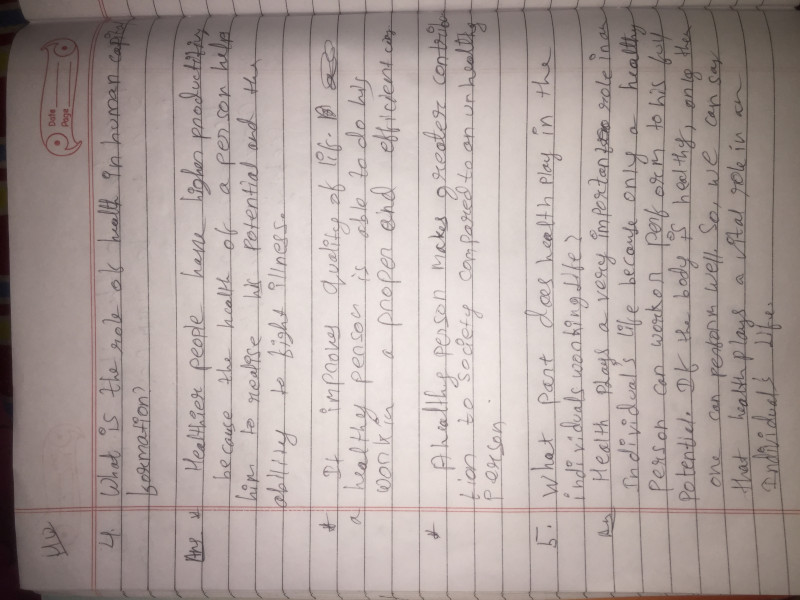 Date
Page
HW
4. What is the role of health in human capital
formation?
Ans * Healthier people have higher productivity
because the health of a person help
him to realise his potential and the
ability to fight illness.
* It improves quality of life.
a healthy person is able to do his
work in a proper and efficient
* A healthy person makes greater contribu
tion to society compared to an unhealthy
person.
5. What part does health play in the
individuals working life?
Ans Health plays a very important role in an
Individual's life because only a healthy
person can work on perform to his full
potential. If the body is healthy, only then
one can perform well. So, we can say
that health plays a vital role in an
Individual's life.